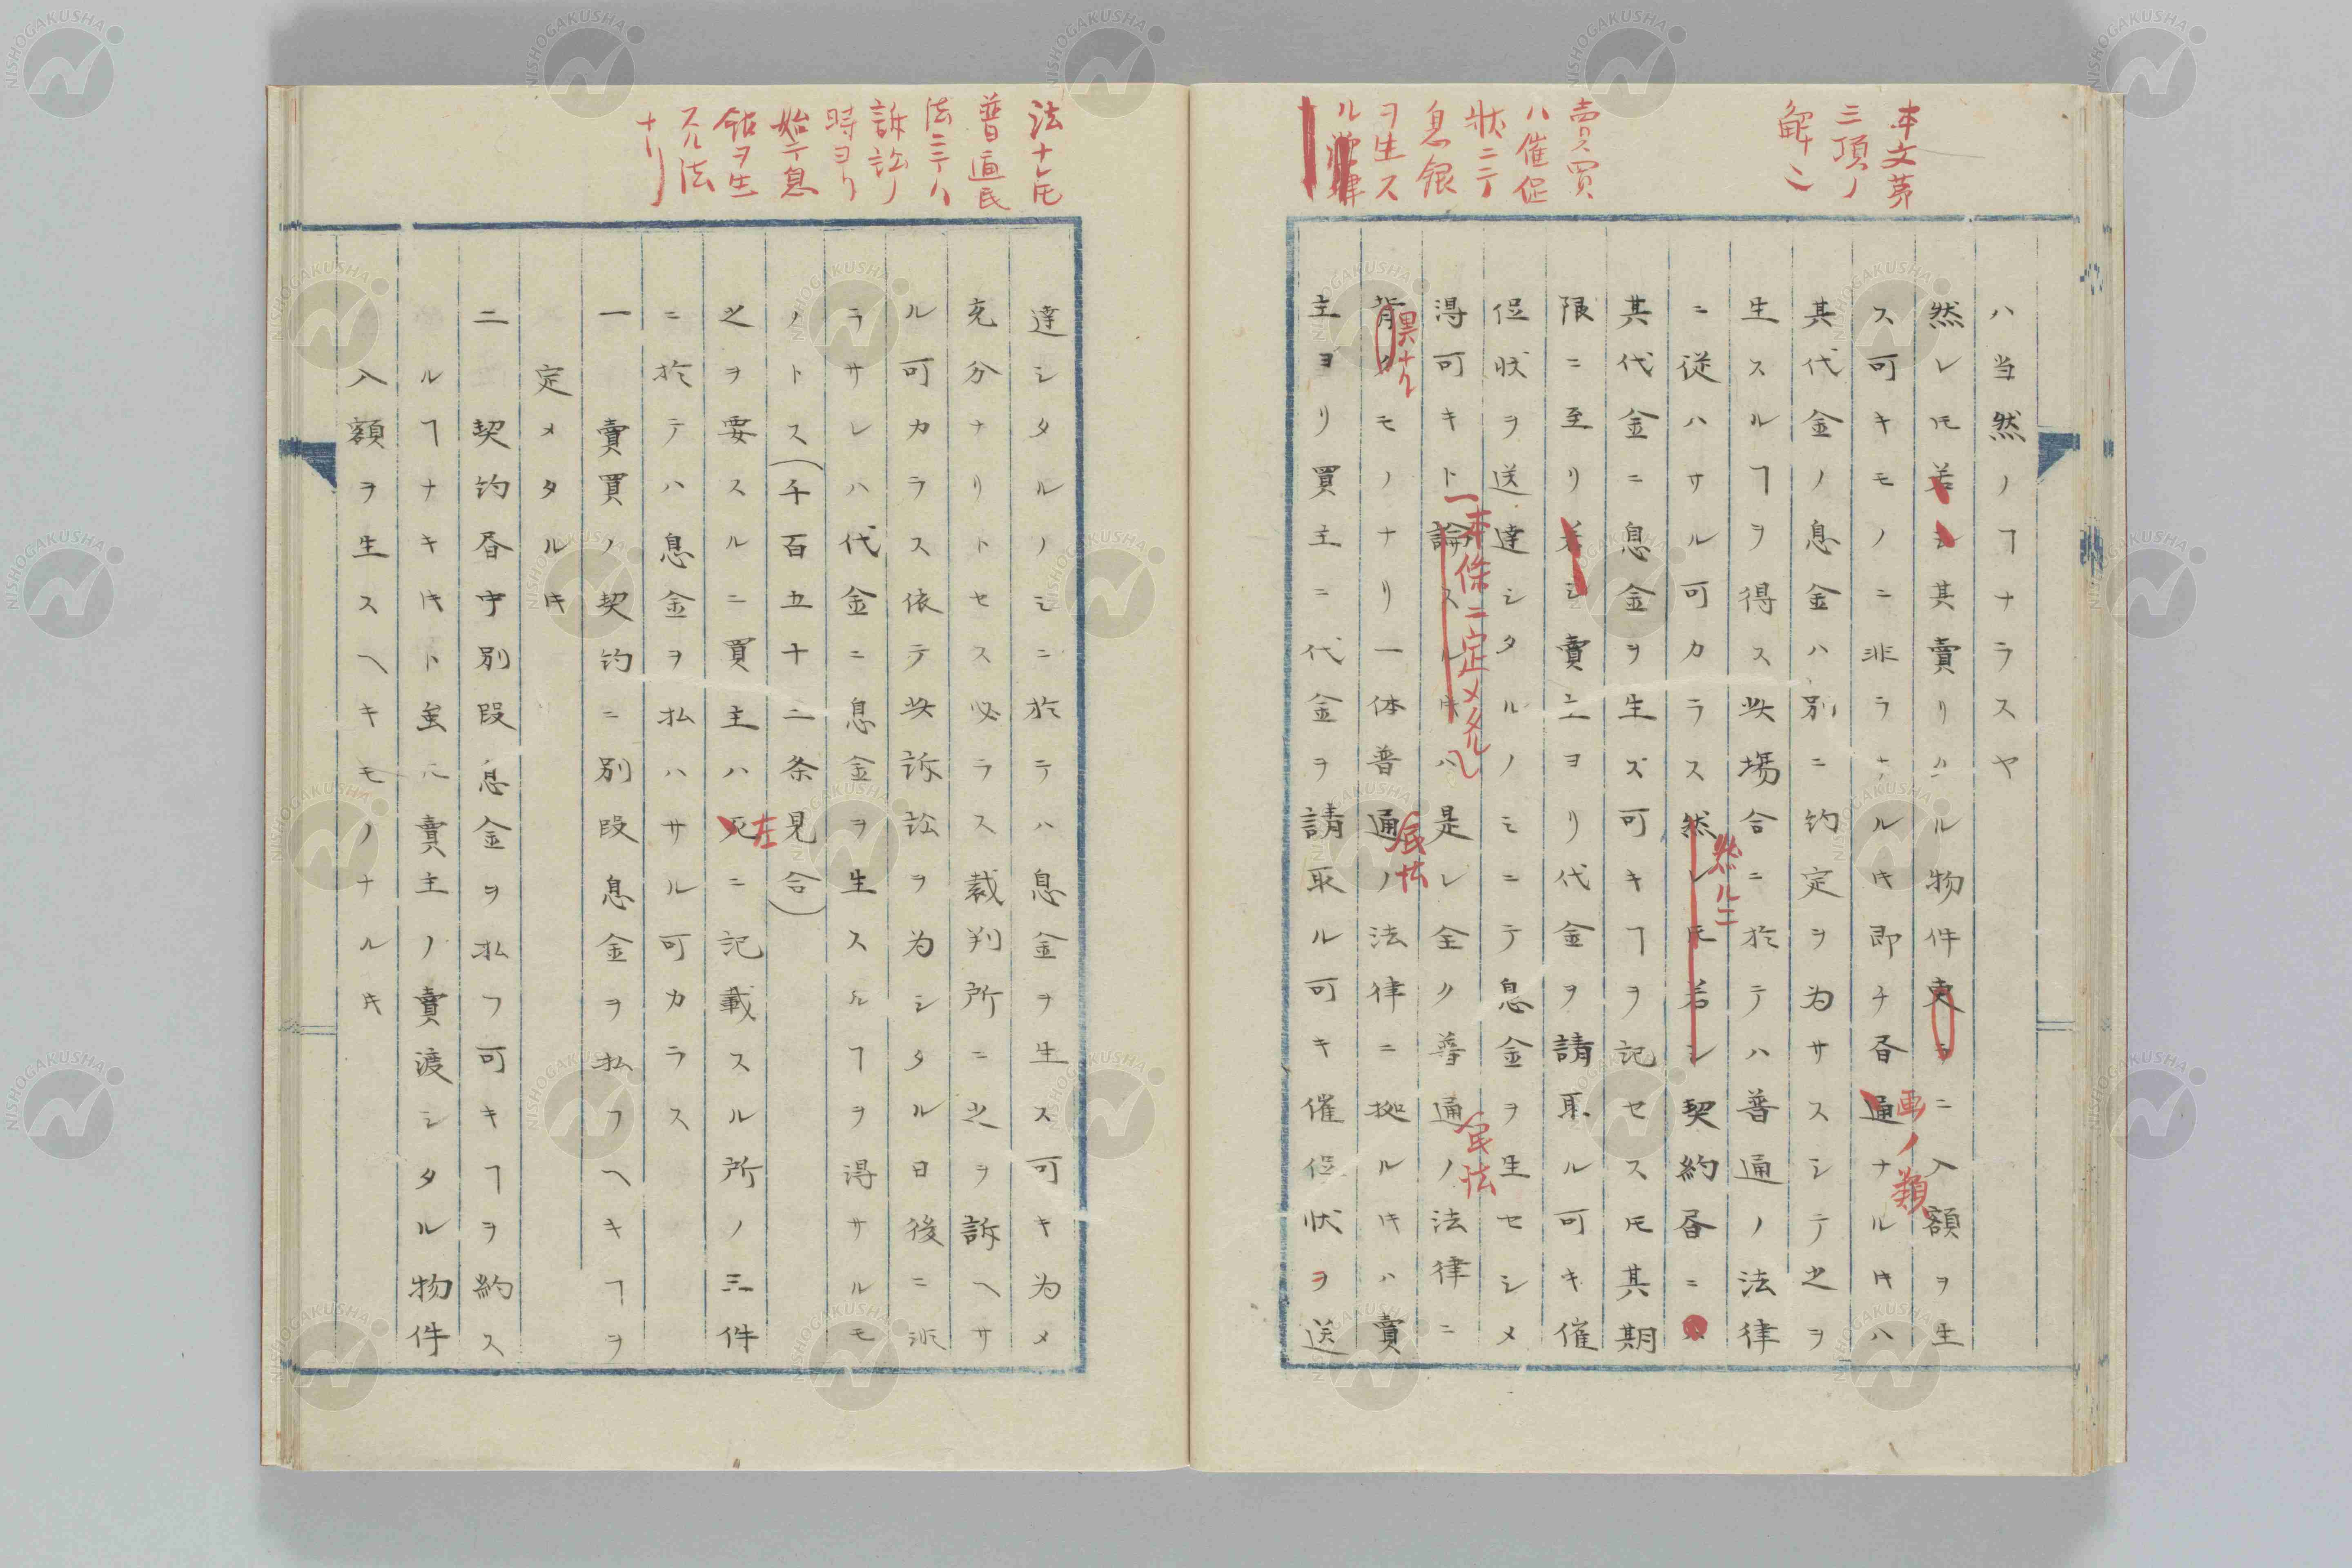 本文第
三項ノ
解ニ
売買
ハ催促
状ニテ
息銀
ヲ生ス
ル
ハ当然ノヿナラスヤ
然レ𪜈若シ其賣リタル物件更ラニ入額ヲ生
ス可キモノニ非ラサル𬼀即チ昏通ナル𬼀ハ
画ノ類
其代金ノ息金ハ別ニ約定ヲ為サスシテ之ヲ
生スルヿヲ得ス此場合ニ於テハ普通ノ法律
ニ従ハサル可カラス然レ𪜈若シ契約書ニハ
然ルニ
其代金ニ息金ヲ生ズ可キヿヲ記セス𪜈其期
限ニ至リ若シ賣主ヨリ代金ヲ請取ル可キ催
促状ヲ送達シタルノミニテ息金ヲ生セシメ
得可キト論スル𬼀ハ是レ全ク普通ノ法律ニ
本條ニ定メタル
民法
背クモノナリ一体普通ノ法律ニ拠ル𬼀ハ賣
異ナル
民法
主ヨリ買主ニ代金ヲ請取ル可キ催促状ヲ送
法ナレ𪜈
普通民
法ニテハ
訴訟ノ
時ヨリ
始テ息
銀ヲ生
スル法
ナリ
達シタルノミニ於テハ息金ヲ生ス可キ為メ
充分ナリトセス必ラス裁判所ニ之ヲ訴ヘサ
ル可カラス依テ此訴訟ヲ為シタル日後ニ非
ラサレハ代金ニ息金ヲ生スルヿヲ得サルモ
ノトス(千百五十三条見合)
之ヲ要スルニ買主ハ死ニ記載スル所ノ三件
左
ニ於テハ息金ヲ払ハサル可カラス
一 賣買ノ契約ニ別段息金ヲ払フヘキヿヲ
定メタル𬼀
二 契約書中別段息金ヲ払フ可キヿヲ約ス
ルヿナキ𬼀ト虽𪜈賣主ノ賣渡シタル物件
入額ヲ生スヘキモノナル𬼀